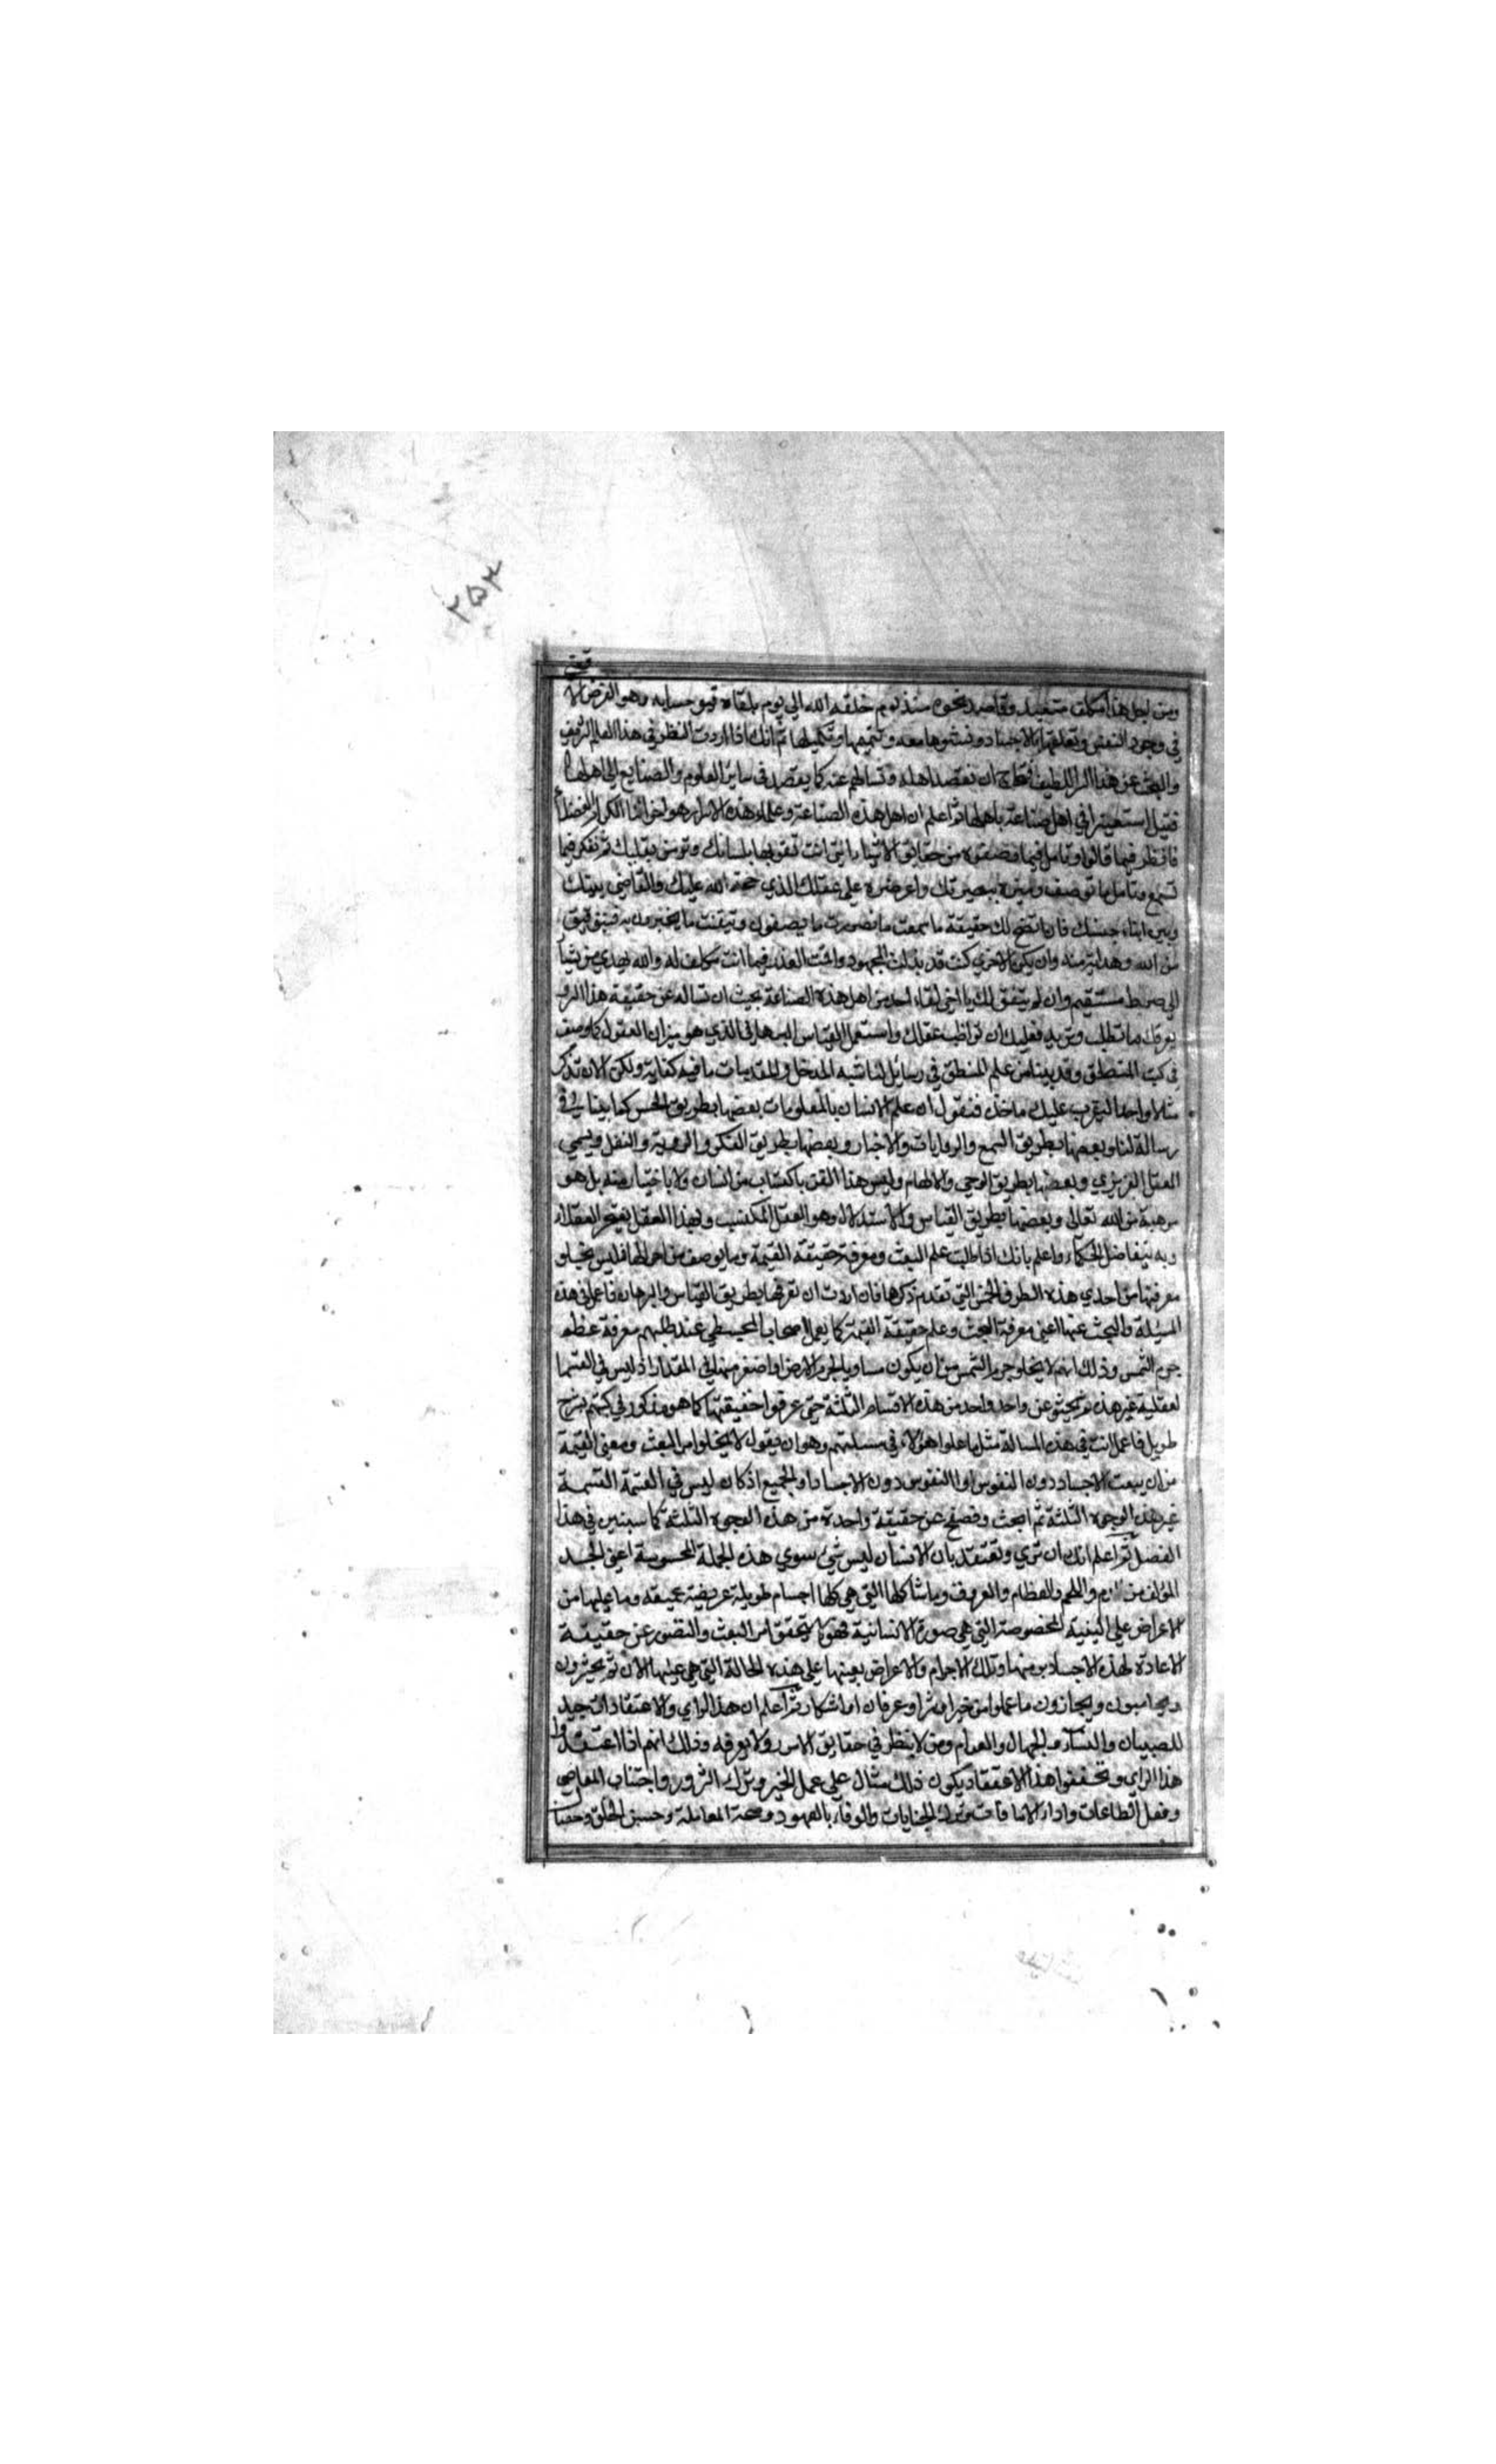 ٢٥٤
ومن اجل هذا مكلف متعبد وقاصد نحوه منذ يوم خلقه الله الى يوم يلقاه فيوفيه حسابه وهو الغرض الا
في وجود النفس وتعلقها بالاجساد ونشوها معه وتتميمها وتكميلها ثم انك اذا اردت النظر في هذا العلم الشريف
والبحث عن هذا السر اللطيف فتحتاج ان تقصد اهله وتسالهم عنه كما يقصد في ساير العلوم والصنايع الى اهلها
فقيل استعينوا في اهل صناعة باهلها ثم اعلم ان اهل هذه الصناعة وعلماء هذه الاسرار هو اخواننا الكرام الفضلا
فانظر فيما قالوا وتامل فيما وصفوه من حقايق الاشياء التي انت تقر بها بلسانك وتومن بقلبك ثم تفكر فيما
تسمع وتامل ما توصف وميزه ببصيرتك واعرضه على عقلك الذي حجة الله عليك والقاضي بينك
وبين ابناء جنسك فان اتضح لك حقيقة ما سمعت ما تصورت ما يصفون وتيقنت ما يخبرون به فبتوفيق
من الله وهداية منه وان يكن الاخرى كنت قد بذلت المجهود واقمت العذر فيما انت مكلف له والله يهدي من يشا
الى صراط مستقيم وان لم يتفق لك يا اخي لقاء احد من اهل هذه الصناعة بحيث ان تساله عن حقيقة هذا السر و
يعرفك ما تطلب وتريد فعليك ان تواظب عقلك واستعمل القياس البرهاني الذي هو ميزان العقول كما وصف
في كتب المنطق وقد بينا من علم المنطق في رسائل لنا شبه المدخل والمقدمات ما فيه كفاية ولكن الان نذكر
مثالا واحدا ليقرب عليك ماخذه فنقول ان علم الانسان بالمعلومات بعضها بطريق الحس كما بينا في
رسالة لنا وبعضها بطريق السمع والروايات والاخبار وبعضها بطريق الفكر والروية والنظر ويسمى
العقل الغريزي وبعضها بطريق الوحي والالهام وليس هذا الفن باكتساب من انسان ولا باختيار منه بل هو
موهبة من الله تعالى وبعضها بطريق القياس والاستدلال وهو العقل المكتسب وبهذا العقل يفتخر العقلاء
وبه يتفاضل الحكماء واعلم بانك اذا طلبت علم البعث ومعرفة حقيقة القيمة وما يوصف من احوالها فليس يخلو
معرفتها من احدى هذه الطرق الخمس التي تقدم ذكرها فان اردت ان تعرفها بطريق القياس والبرهان فاعمل في هذه
المسئلة والبحث عنها اعنى معرفة البعث وعلم حقيقة القيمة كما يعمل اصحاب المجسطي عند طلبهم معرفة عظم
جرم الشمس وذلك انه لا يخلو جرم الشمس من ان يكون مساويا لجرم الارض او اصغر منها في المقدار اذ ليس في القسمة
لعقلية غير هذه ثم بحثو عن واحد واحد من هذه الاقسام الثلثة حتى عرفوا حقيقتها كما هو مذكور في كتبهم بشرح
طويل فاعمل انت في هذه المسالة مثل ما عملوا هؤلاء في مسئلتهم وهو ان يقول لا يخلو امر البعث ومعنى القيمة
من ان يبعث الاجساد دون النفوس او النفوس دون الاجساد او الجميع اذ كان ليس في القسمة
غير هذه الوجوه الثلثة ثم ابحث وتصفح عن حقيقة واحدة من هذه الوجوه الثلثة كما سنبين في هذا
الفصل ثم اعلم انك ان ترى وتعتقد بان الانسان ليس شئ سوى هذه الجملة المحسوسة اعنى الجسد
المؤلف من الدم واللحم والعظام والعروق وما شاكلها التي هي كلها اجسام طويلة عريضة عميقة وما عليها من
الاعراض على البنية المخصوصة التي هي صورة الانسانية فهو لا يتحقق امر البعث والتصور عن حقيقة
الاعادة لهذه الاجساد برمتها وتلك الاجرام والاعراض بعينها على هذه الحالة التي هي عليها الان ثم يحشرون
ويحاسبون ويجازون ما عملوا من خير او شر او عرفان او انكار ثم اعلم ان هذا الراي والاعتقادات جيد
للصبيان والنساء والجهال والعوام ومن لا ينظر في حقايق الامور ولا يعرفه وذلك انهم اذا اعتقدوا
هذا الراي وتحققوا هذا الاعتقاد يكون ذلك مثال على عمل الخير وترك الشرور واجتناب المعاصي
وفعل الطاعات واداء الامانات وترك الخيانات والوفاء بالعهود وصحة المعاملة وحسن الخلق وخصال